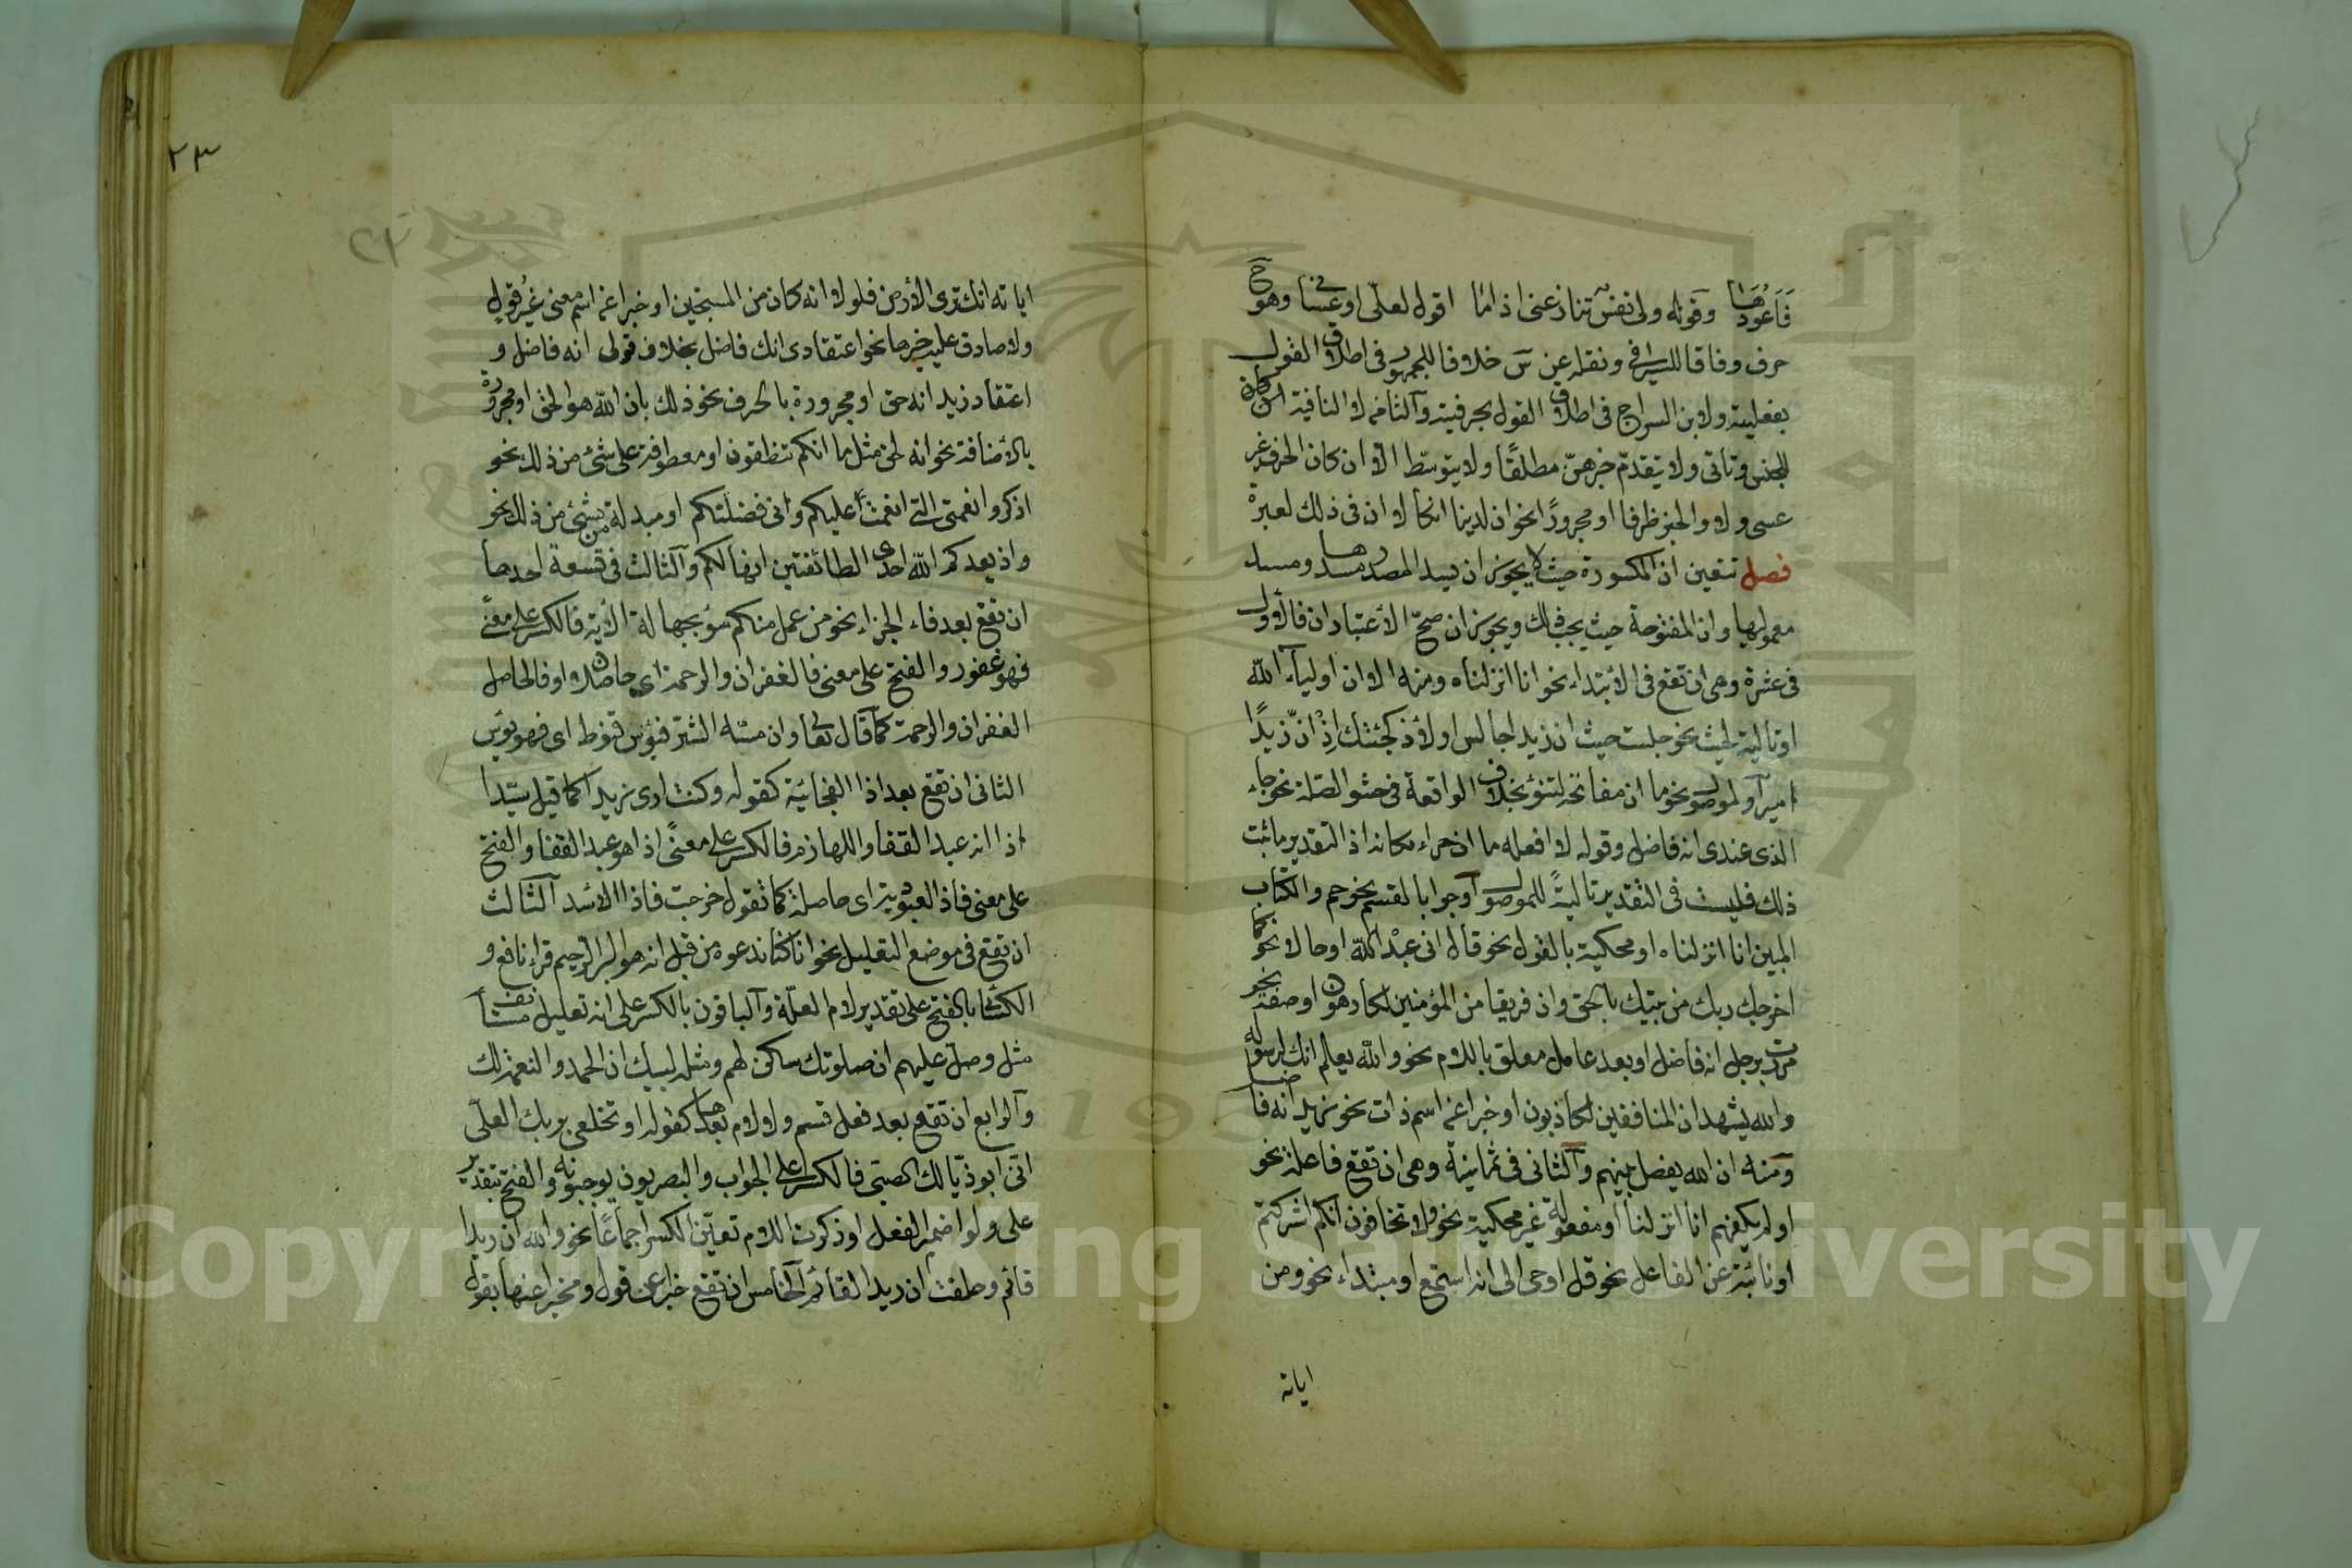 فَأَعُودُهَا وقوله ولى نفس تنازعنى اذا ما اقول لعلى او عسانى وهو ح
حرف وفاقا للسيرافى ونقله عن س خلافا للجمهور فى اطلاق القول
بفعليته ولابن السراج فى اطلاق القول بحرفيته والثامنه لا النافية
للجنس وتأتى ولا يتقدم خبرهن مطلقًا ولا يتوسط الا ان كان الحرف غير
عسى ولا والخبر ظرفا او مجرورًا نحو ان لدينا انكالا ان فى ذلك لعبرة
فصل تتعين ان المكسورة حيث لا يجوز ان يسد المصدر مسدها ومسد
معموليها وان المفتوحة حيث يجب ذلك ويجوزان ان صح الاعتباران فالاول
فى عشرة وهى ان تقع فى الابتداء نحو انا انزلناه ومنه الا ان اولياء الله
او تالية لحيث نحو جلست حيث ان زيدا جالس او لاذ كجئتك اِذْ انّ زيدًا
امير او لموصول نحو ما ان مفاتحه لتنوء بخلاف الواقعة فى حشو الصلة نحو جاء
الذى عندى انه فاضل وقوله لا افعله ما ان حراء مكانه اذ التقدير ما ثبت
ذلك فليست فى التقدير تالية للموصول او جوابا لقسم نحو حم والكتاب
المبين انا انزلناه او محكية بالقول نحو قال انى عبد الله او حالا نحو كما
اخرجك ربك من بيتك بالحق وان فريقا من المؤمنين لكارهون او صفة نحو
مررت برجل انه فاضل او بعد عامل معلق باللام نحو والله يعلم انك لرسوله
والله يشهد ان المنافقين لكاذبون او خبرا عن اسم ذات نحو زيد انه فاضل
ومنه ان الله يفصل بينهم والثانى فى ثمانية وهى ان تقع فاعلة نحو
اولم يكفهم انا انزلنا او مفعولة غير محكية نحو ولا تخافون انكم اشركتم
او نائبة عن الفاعل نحو قل اوحى الى انه استمع او مبتداء نحو ومن
اياته
٢٣
اياته انك ترى الارض فلولا انه كان من المسبحين او خبرا عن اسم معنى غير قول
ولا صادق عليه خبرها نحو اعتقادى انك فاضل بخلاف قولى انه فاضل و
اعتقاد زيد انه حق او مجرورة بالحرف نحو ذلك بان الله هو الحق او مجرورة
بالاضافة نحو انه لحق مثل ما انكم تنطقون او معطوفة على شئ من ذلك نحو
اذكروا نعمتى التى انعمت عليكم وانى فضلتكم او مبدلة من شئ من ذلك نحو
واذ يعدكم الله احدى الطائفتين انها لكم والثالث فى تسعة احدها
ان تقع بعد فاء الجزاء نحو من عمل منكم سوءا بجهالة الاية فالكسر على معنى
فهو غفور والفتح على معنى فالغفران والرحمة اى حاصلان او فالحاصل
الغفران والرحمة كما قال تعالى وان مسه الشر فيؤس قنوط اى فهو يؤس
الثانى ان تقع بعد اذا الفجائية كقوله وكنت ارى زيدا كما قيل سيدا
اذا انه عبد القفا واللهازم فالكسر على معنى اذا هو عبد القفا والفتح
على معنى فاذا العبودية اى حاصلة كما تقول خرجت فاذا الاسد الثالث
ان تقع فى موضع التعليل نحو انا كنا ندعوه من قبل انه هو البر الرحيم قراء نافع و
الكسائى بالفتح على تقدير لام العلة والباقون بالكسر على انه تعليل مستأنف
مثل وصل عليهم ان صلوتك سكن لهم ومثله لبيك ان الحمد والنعمة لك
والرابع ان تقع بعد فعل قسم ولا لام بعدها كقوله او تحلفى بربك العلى
انى ابو ذيالك الصبى فالكسر على الجواب والبصريون يوجبونه والفتح بتقدير
على ولو اضمر الفعل او ذكرت اللام تعين الكسر اجماعًا نحو والله ان زيدا
قائم وحلفت ان زيدا لقائم الخامس ان تقع خبرا عن قول ومخبرا عنها بقول
Copyright © King Saud University